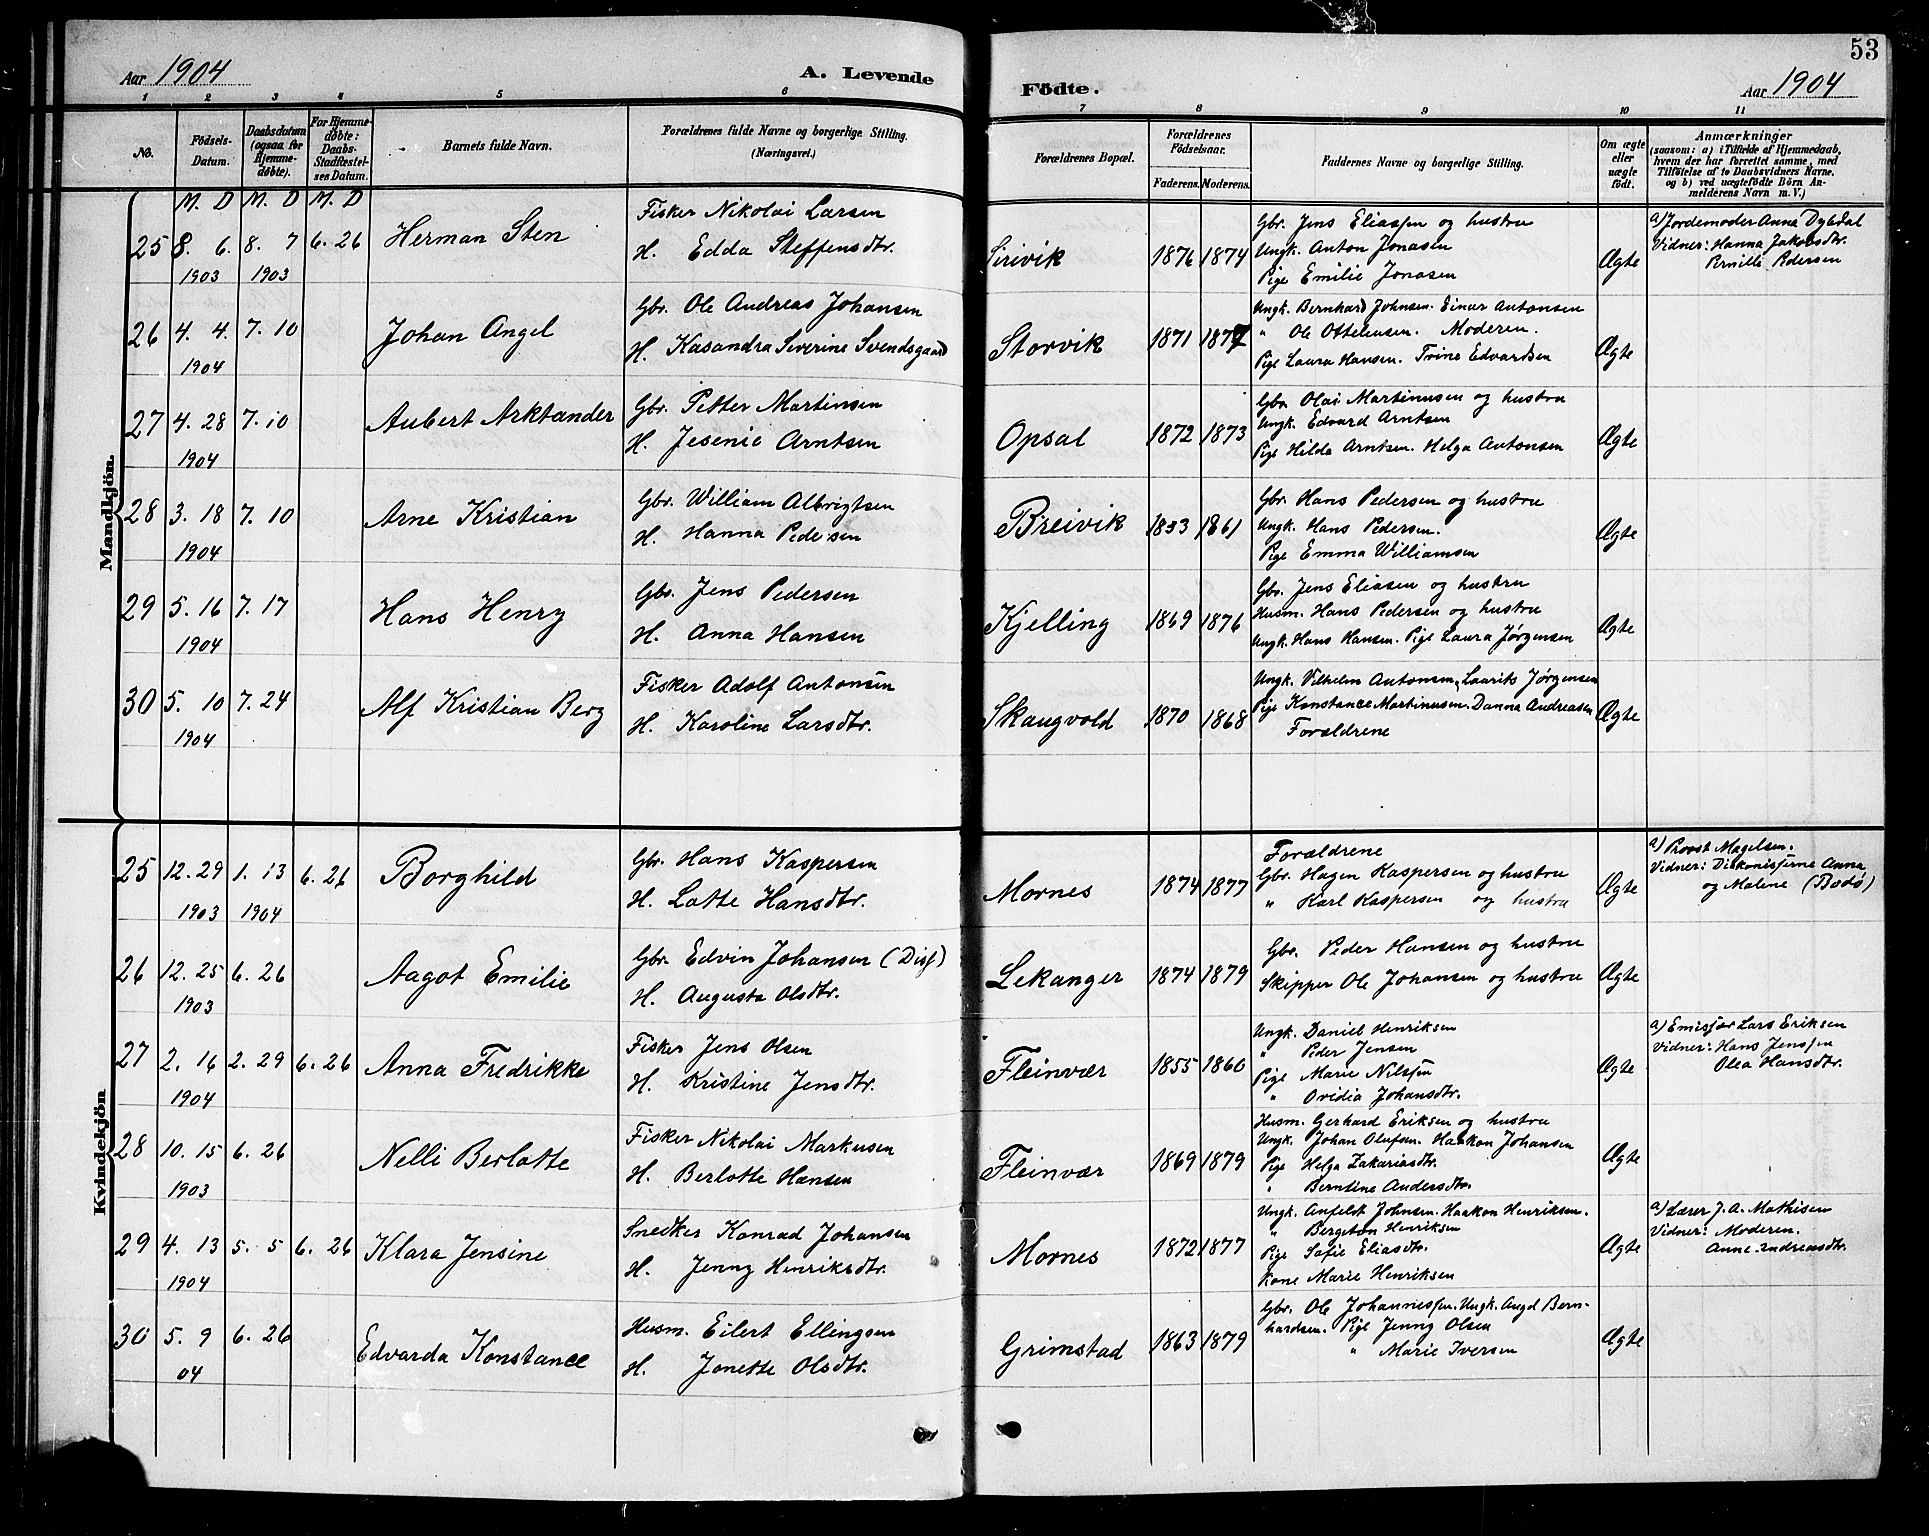 53
Aar 1904 A. Levende Födte. Aar 1904
1 2 3 4 5 6 7 8 9 10 11
No. Födsels-Datum. Daabsdatum (ogsaa for Hjemmedöbte). For Hjemmedöbte: Daabs-Stadfæstelses Datum. Barnets fulde Navn. Forældrenes fulde Navne og borgerlige Stilling. (Næringsvei.) Forældrenes Bopæl. Forældrenes Födselsaar. Faderens. Moderens. Faddernes Navne og borgerlige Stilling. Om ægte eller uægte födt. Anmærkninger (saasom: a) i Tilfælde af Hjemmedaab, hvem der har forrettet samme, med Tilföielse af to Daabsvidners Navne, og b) ved uægtefödte Börn Anmelderens Navn m. V.)
M. D M. D M. D
Mandkjön.
25 8. 6. 1903 8. 7 1903 6. 26 Herman Sten
Fisker Nikolai Larsen
H. Edda Steffensdtr.
Sirivik 1876 1874
Gbr. Jens Eliassen og hustru
Ungk. Anton Jonasen
Pige Emilie Jonasen
Ægte
a) Jordemoder Anna Dybdal
Vidner: Hanna Jakobsdtr.
Pernille Pedersen
26 4. 4. 1904 7. 10 Johan Angel
Gbr. Ole Andreas Johansen
H. Kasandra Severine Svendsgaard
Storvik 1871 1877
Ungk. Bernhard Johnsen. Einar Antonsen
" Ole Ottelensen. Moderen.
Pige Laura Hansen. Trine Edvardsen
Ægte
27 4. 28 1904 7. 10 Aubert Arktander
Gbr. Petter Martinsen
H. Jesenie Arntsen
Opsal 1872 1873
Gbr. Olai Martinusen og hustru
Ungk. Edvard Arntsen
Pige Hilda Arntsen. Helga Antonsen
Ægte
28 3. 18 1904 7. 10 Arne Kristian
Gbr. William Albrigtsen
H. Hanna Pedersen
Breivik 1853 1861
Gbr. Hans Pedersen og hustru
Ungk. Hans Pedersen.
Pige Emma Williamsen
Ægte
29 5. 16 1904 7. 17 Hans Henry
Gbr. Jens Pedersen
H. Anna Hansen
Kjelling 1869 1876
Gbr. Jens Eliasen og hustru
Husm. Hans Pedersen og hustru
Ungk. Hans Hansen. Pige Laura Jørgensen
Ægte
30 5. 10 1904 7. 24 Alf Kristian Berg
Fisker Adolf Antonsen
H. Karoline Larsdtr.
Skaugvold 1870 1868
Ungk. Vilhelm Antonsen, Laurits Jørgensen
Pige Konstance Martinusen. Danna Andreasen
Forældrene
Ægte
Kvindekjön
25 12. 29 1903 1. 13 1904 6. 26 Borghild
Gbr. Hans Kaspersen
H. Lotte Hansdtr.
Mornes 1874 1877
Forældrene
Gbr. Hagen Kaspersen og hustru
" Karl Kaspersen og hustru
Ægte
a) Provst Magelsen.
Vidner: Diakonisserne Anna
og Malene (Bodø)
26 12. 25 1903 6. 26 Aagot Emilie
Gbr. Edvin Johansen (Diss)
H. Augusta Olsdtr.
Lekanger 1874 1879
Gbr. Peder Hansen og hustru
Skipper Ole Johansen og hustru
Ægte
27 2. 16 1904 2. 29 6. 26 Anna Fredrikke
Fisker Jens Olsen
H. Kristine Jensdtr.
Fleinvær 1855 1860
Ungk. Daniel Henriksen
" Peder Jensen
Pige Marie Nilssen
" Ovidia Johansdtr.
Ægte
a) Emissær Lars Eriksen
Vidner: Hans Jenssen
Olea Hansdtr.
28 10. 15 1903 6. 26 Nelli Berlotte
Fisker Nikolai Markusen
H. Berlotte Hansen
Fleinvær 1869 1879
Husm. Gerhard Eriksen og hustru
Ungk. Johan Olufsen. Haakon Johansen
Pige Helga Zakariasdtr.
" Berntine Andersdtr.
Ægte
29 4. 13 1904 5. 5 6. 26 Klara Jensine
Snedker Konrad Johansen
H. Jenny Henriksdtr.
Mornes 1872 1877
Ungk. Anfeldt Johnsen. Haakon Henriksen.
" Bergeton Henriksen
Pige Sofie Eliasdtr.
Kone Marie Henriksen
Ægte
a) Lærer J. A. Mathisen
Vidner: Moderen.
Anne Andreasdtr.
30 5. 9 04 6. 26 Edvarda Konstance
Husm. Eilert Ellingsen
H. Jonette Olsdtr.
Grimstad 1863 1879
Gbr. Ole Johannessen. Ungk. Angel Bern-
hardsen. Pige Jenny Olsen
" Marie Iversen
Ægte